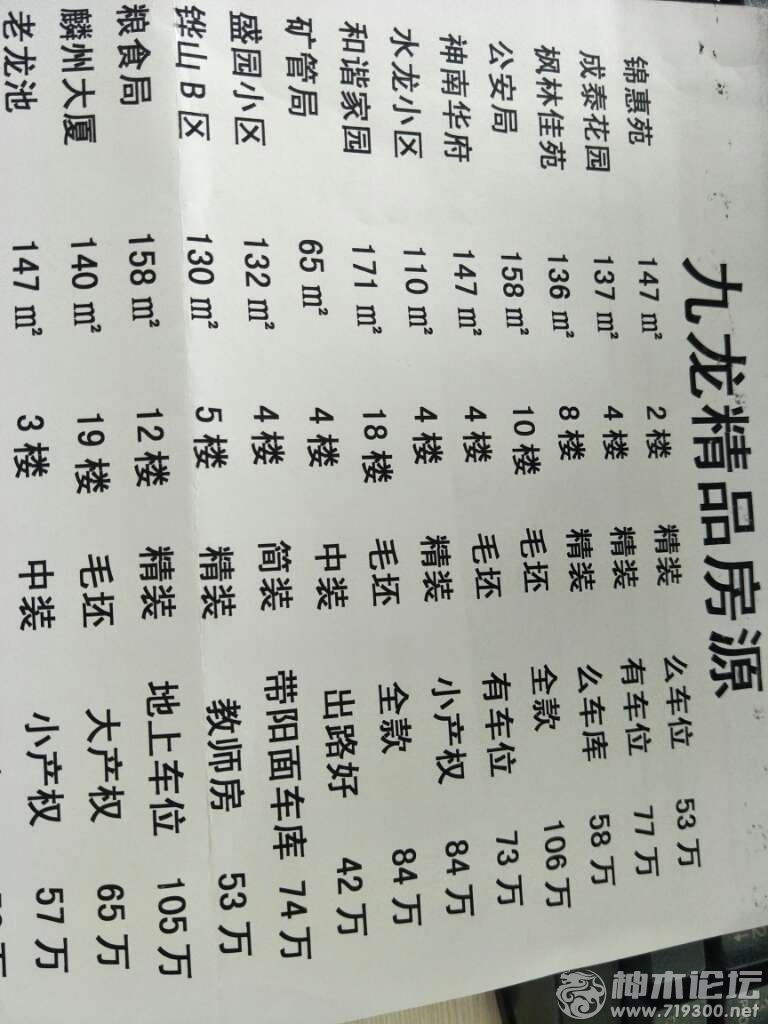 九龙精品房源
锦惠苑 147㎡ 2楼 精装 公车位 53万
成泰花园 137㎡ 4楼 精装 有车位 77万
枫林佳苑 136㎡ 8楼 精装 公车库 58万
公安局 158㎡ 10楼 毛坯 全款 106万
神南华府 147㎡ 4楼 毛坯 有车位 73万
水龙小区 110㎡ 4楼 精装 小产权 84万
和谐家园 171㎡ 18楼 毛坯 全款 84万
矿管局 65㎡ 4楼 中装 出路好 42万
盛园小区 132㎡ 4楼 简装 带阳面车库 74万
铧山B区 130㎡ 5楼 精装 教师房 53万
粮食局 158㎡ 12楼 精装 地上车位 105万
麟州大厦 140㎡ 19楼 毛坯 大产权 65万
老龙池 147㎡ 3楼 中装 小产权 57万
神木论坛
www.719300.net